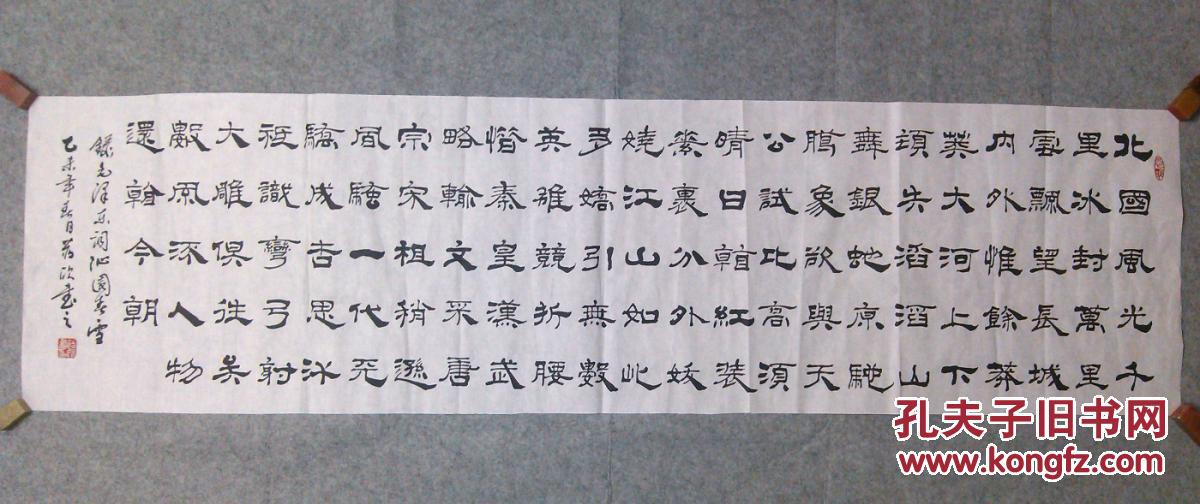 北國風光千
里冰封萬里
雪飄望長城
内外惟餘莽
莽大河上下
頓失滔滔山
舞銀蛇原馳
臘象欲與天
公試比高須
晴日看紅裝
素裹分外妖
嬈江山如此
多嬌引無數
英雄競折腰
惜秦皇漢武
略輸文采唐
宗宋祖稍遜
風騷一代天
驕成吉思汗
祗識彎弓射
大雕俱往矣
數風流人物
還看今朝
錄毛泽东詞沁園春雪
乙未年春月書之
孔夫子旧书网
www.kongfz.com